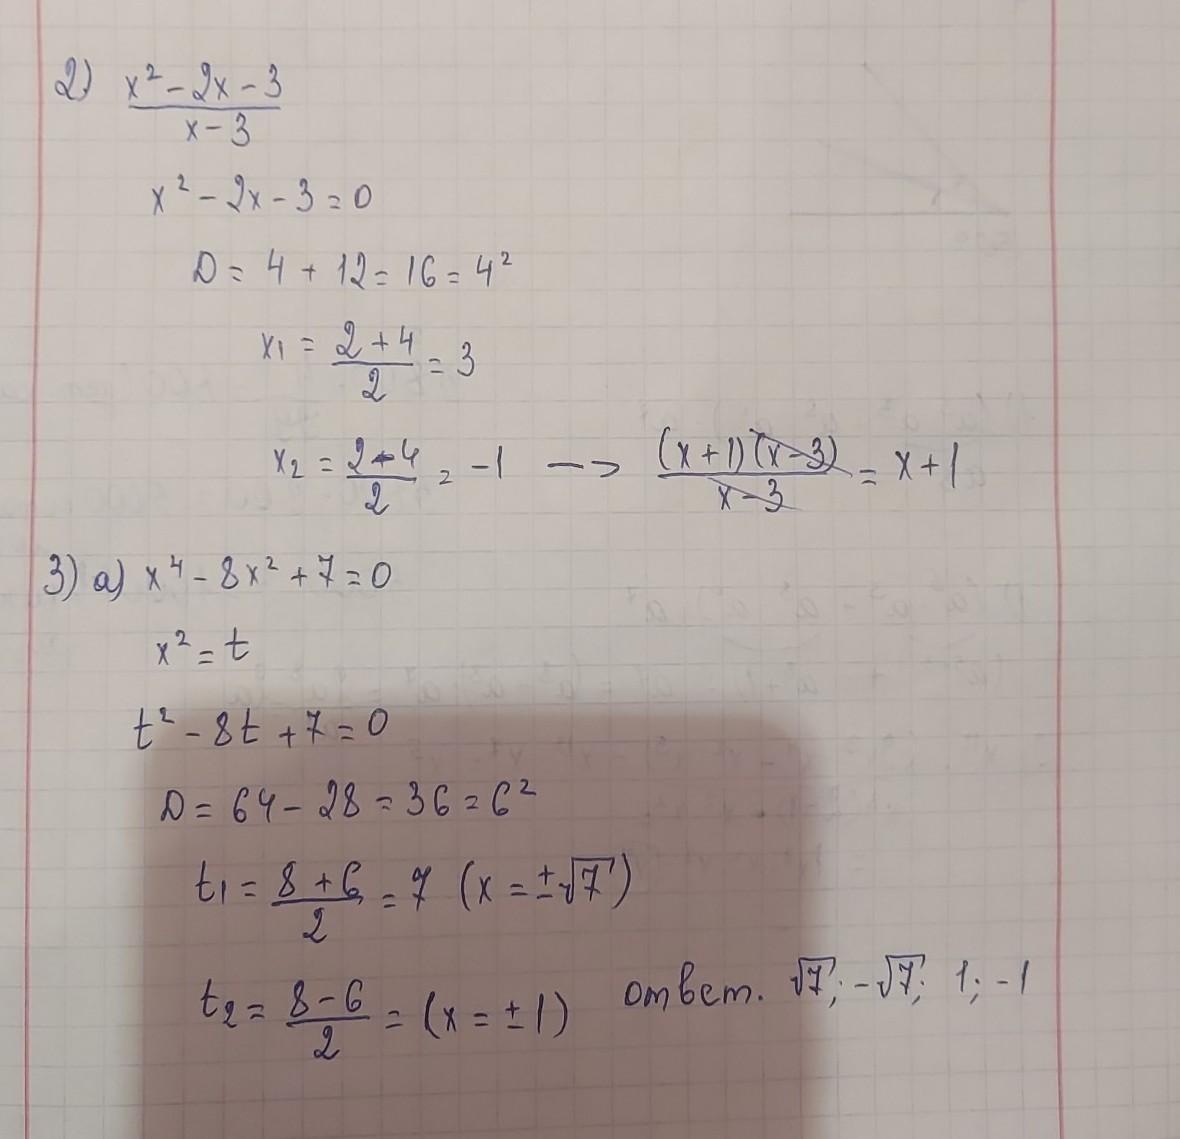 2) (x² - 2x - 3)/(x - 3)
x² - 2x - 3 = 0
D = 4 + 12 = 16 = 4²
x₁ = (2 + 4)/2 = 3
x₂ = (2 - 4)/2 = -1 —> ((x + 1)(x - 3))/(x - 3) = x + 1
3) а) x⁴ - 8x² + 7 = 0
x² = t
t² - 8t + 7 = 0
D = 64 - 28 = 36 = 6²
t₁ = (8 + 6)/2 = 7 (x = ±√7)
t₂ = (8 - 6)/2 = (x = ±1) ответ. √7; -√7; 1; -1